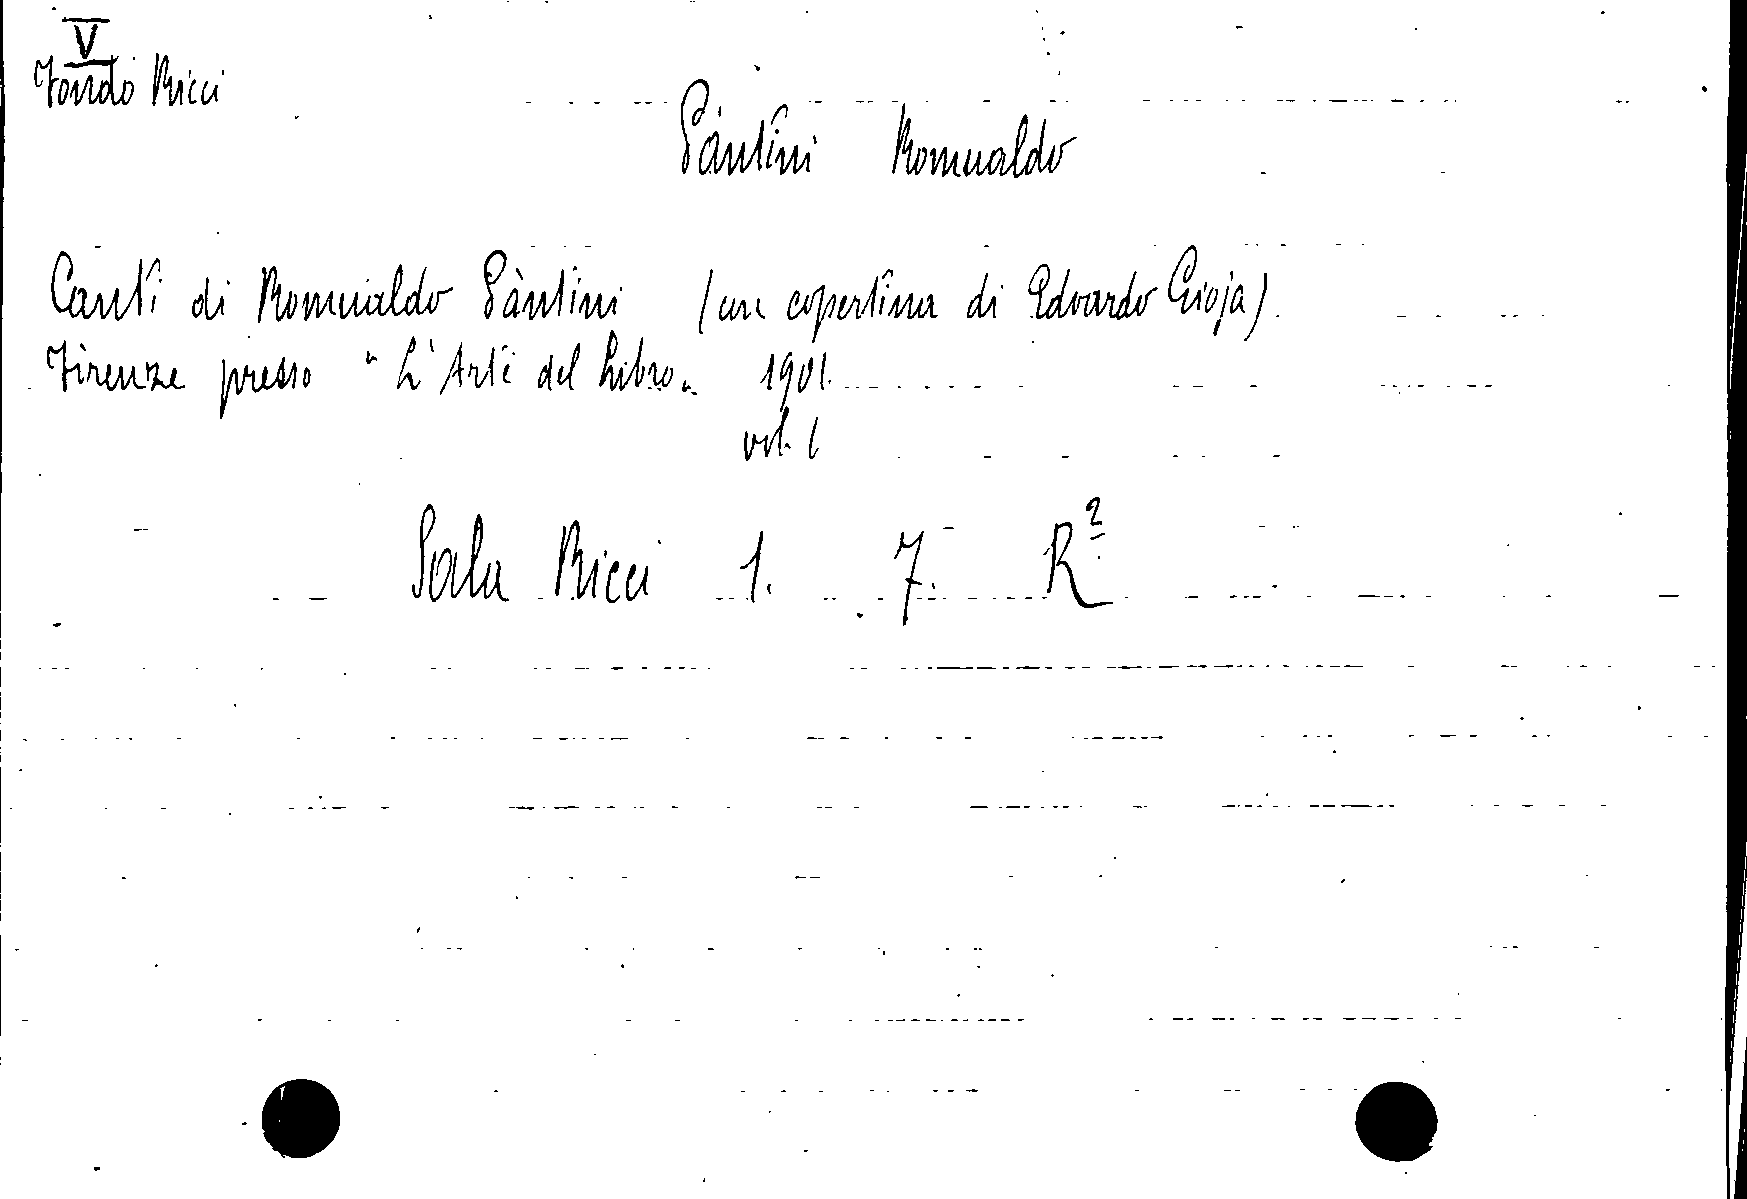 V
Fondo Ricci
Pàntini Romualdo
Canti di Romualdo Pàntini (con copertina di Edoardo Gioja).
Firenze presso "L'Arte del Libro„ 1901.
vol. 1
Sala Ricci 1. 7. R²